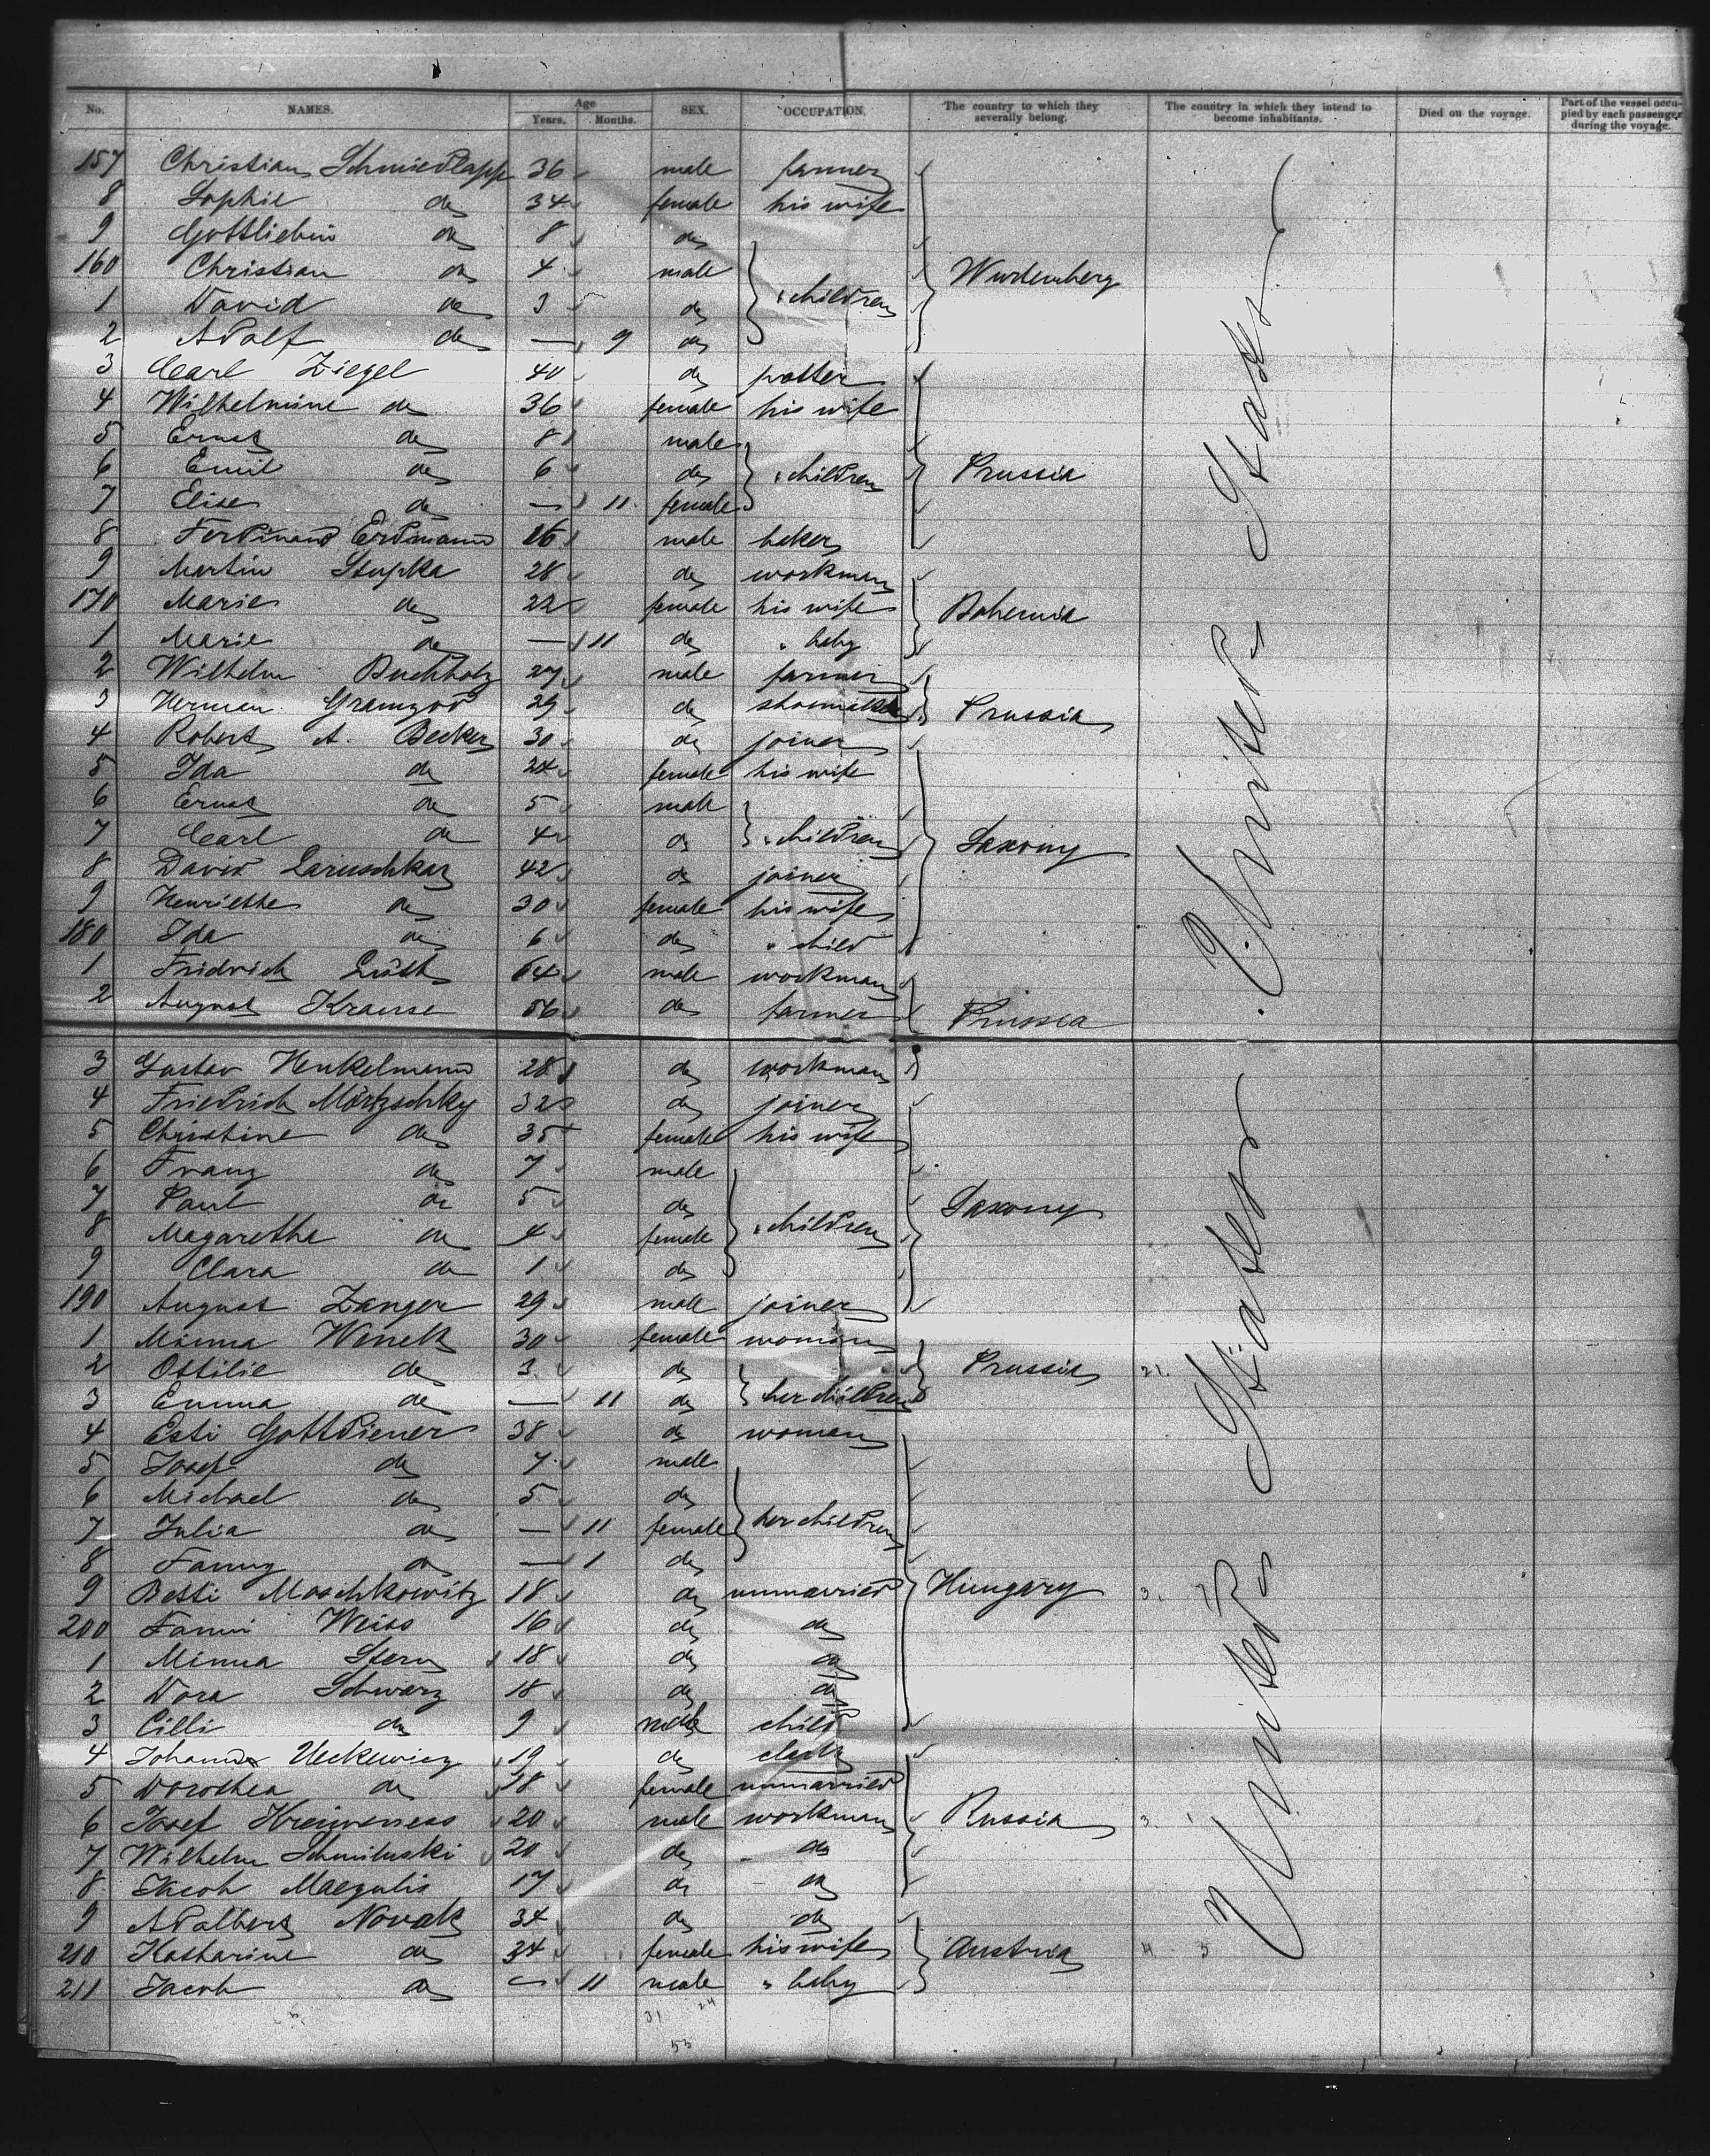 No. NAMES. Age Years. Months. SEX. OCCUPATION. The country to which they severally belong. The country in which they intend to become inhabitants. Died on the voyage. Part of the vessel occupied by each passenger during the voyage.
157 Christian Schmiedlapp 36 male farmer
8 Sophie do 34 female his wife
9 Gottliebin do 8 do
160 Christian do 4 male Wurtemberg
1 David do 3 do " children
2 Adolf do — 9 do
3 Carl Ziegel 40 do potter
4 Wilhelmine do 36 female his wife
5 Ernst do 8 male
6 Emil do 6 do " children Prussia
7 Elise do — 11 female
8 Ferdinand Erdmann 16 male baker
9 Martin Stupka 28 do workman
170 Marie do 22 female his wife Bohemia
1 Marie do — 11 do " baby
2 Wilhelm Buchholz 27 male farmer
3 Herman Gramzod 29 do shoemaker Prussia
4 Robert A. Becker 30 do joiner
5 Ida do 24 female his wife
6 Ernst do 5 male
7 Carl do 4 do " children Saxony
8 David 42 do joiner
9 Henriette do 30 female his wife
180 Ida do 6 do " child
1 Fridrich 64 male workman
2 August Krause 56 do farmer Prussia
United States
3 Gustav Henkelmann 28 do workman
4 Friedrich Mörtzschky 32 do joiner
5 Christine do 35 female his wife
6 Franz do 7 male
7 Paul do 5 do Saxony
8 Magaretha do 4 female " children
9 Clara do 1 do
190 August Zanger 29 male joiner
1 Minna Wenck 30 female woman
2 Ottilie do 3 do Prussia 21.
3 Emma do — 11 do her children
4 Esti Gottdiener 38 do woman
5 Josef do 7 male
6 Michael do 5 do
7 Julia do — 11 female her children
8 Fanny do — 1 do
9 Betti Moschkowitz 18 do unmarried Hungary 3.
200 Fanni Weiss 16 do do
1 Minna Stern 18 do do
2 Dora Schwarz 18 do do
3 Cilli do 9 male child
4 19 do clerk
5 Dorothea do 18 female unmarried
6 Josef 20 male workman Russia 3. 1
7 Wilhelm Schmiluski 20 do do
8 Jacob Maegulis 17 do do
9 Adalbert Novak 34 do do
210 Katharine do 34 female his wife Austria 4 5
211 Jacob do — 11 male " baby
United States
31 24
53